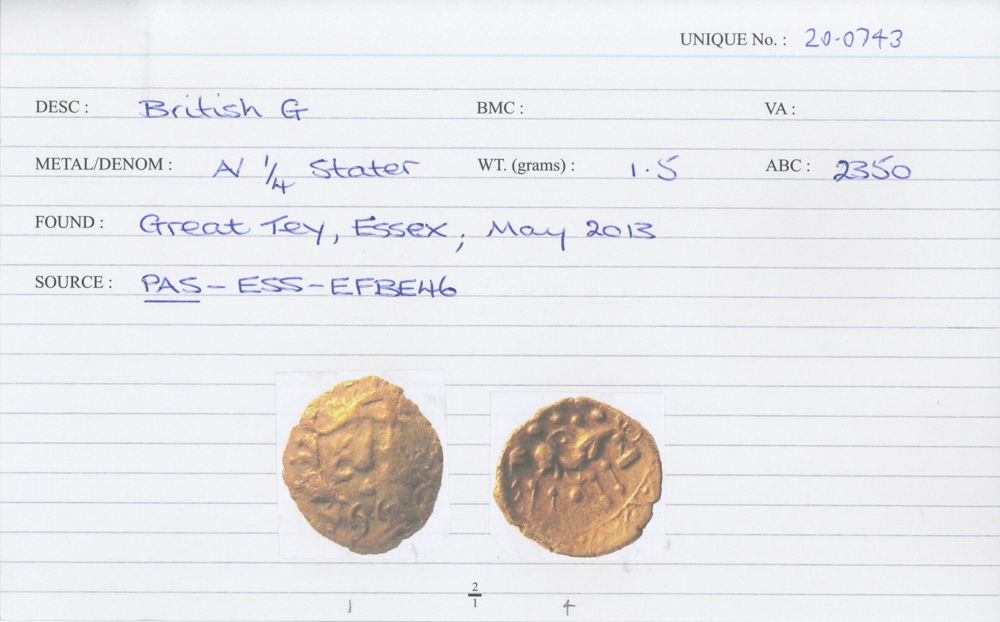 UNIQUE No. : 20-0743
DESC : British G BMC : VA :
METAL/DENOM : A/ 1/4 Stater WT. (grams) : 1.5 ABC : 2350
FOUND : Great Tey, Essex; May 2013
SOURCE : PAS - ESS - EFBE46
2/1
1 4